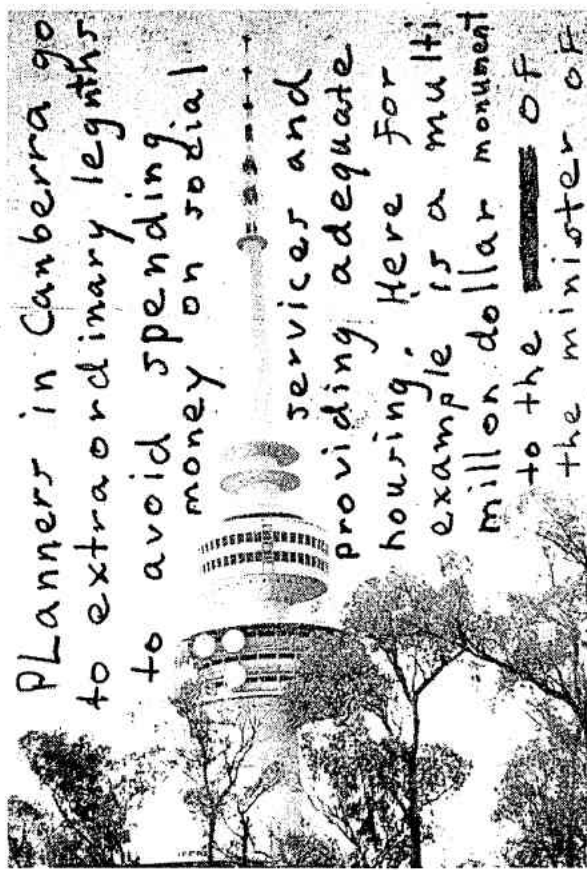 PLanners in Canberra go
to extraordinary legnths
to avoid spending
money on social
services and
providing adequate
housing. Here for
example is a multi
millon dollar monument
to the OF
the minister OF